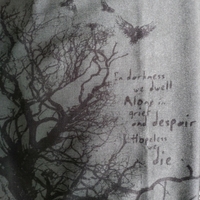 In darkness
we dwell
Alone in
grief
and despair
Hopeless
we
die